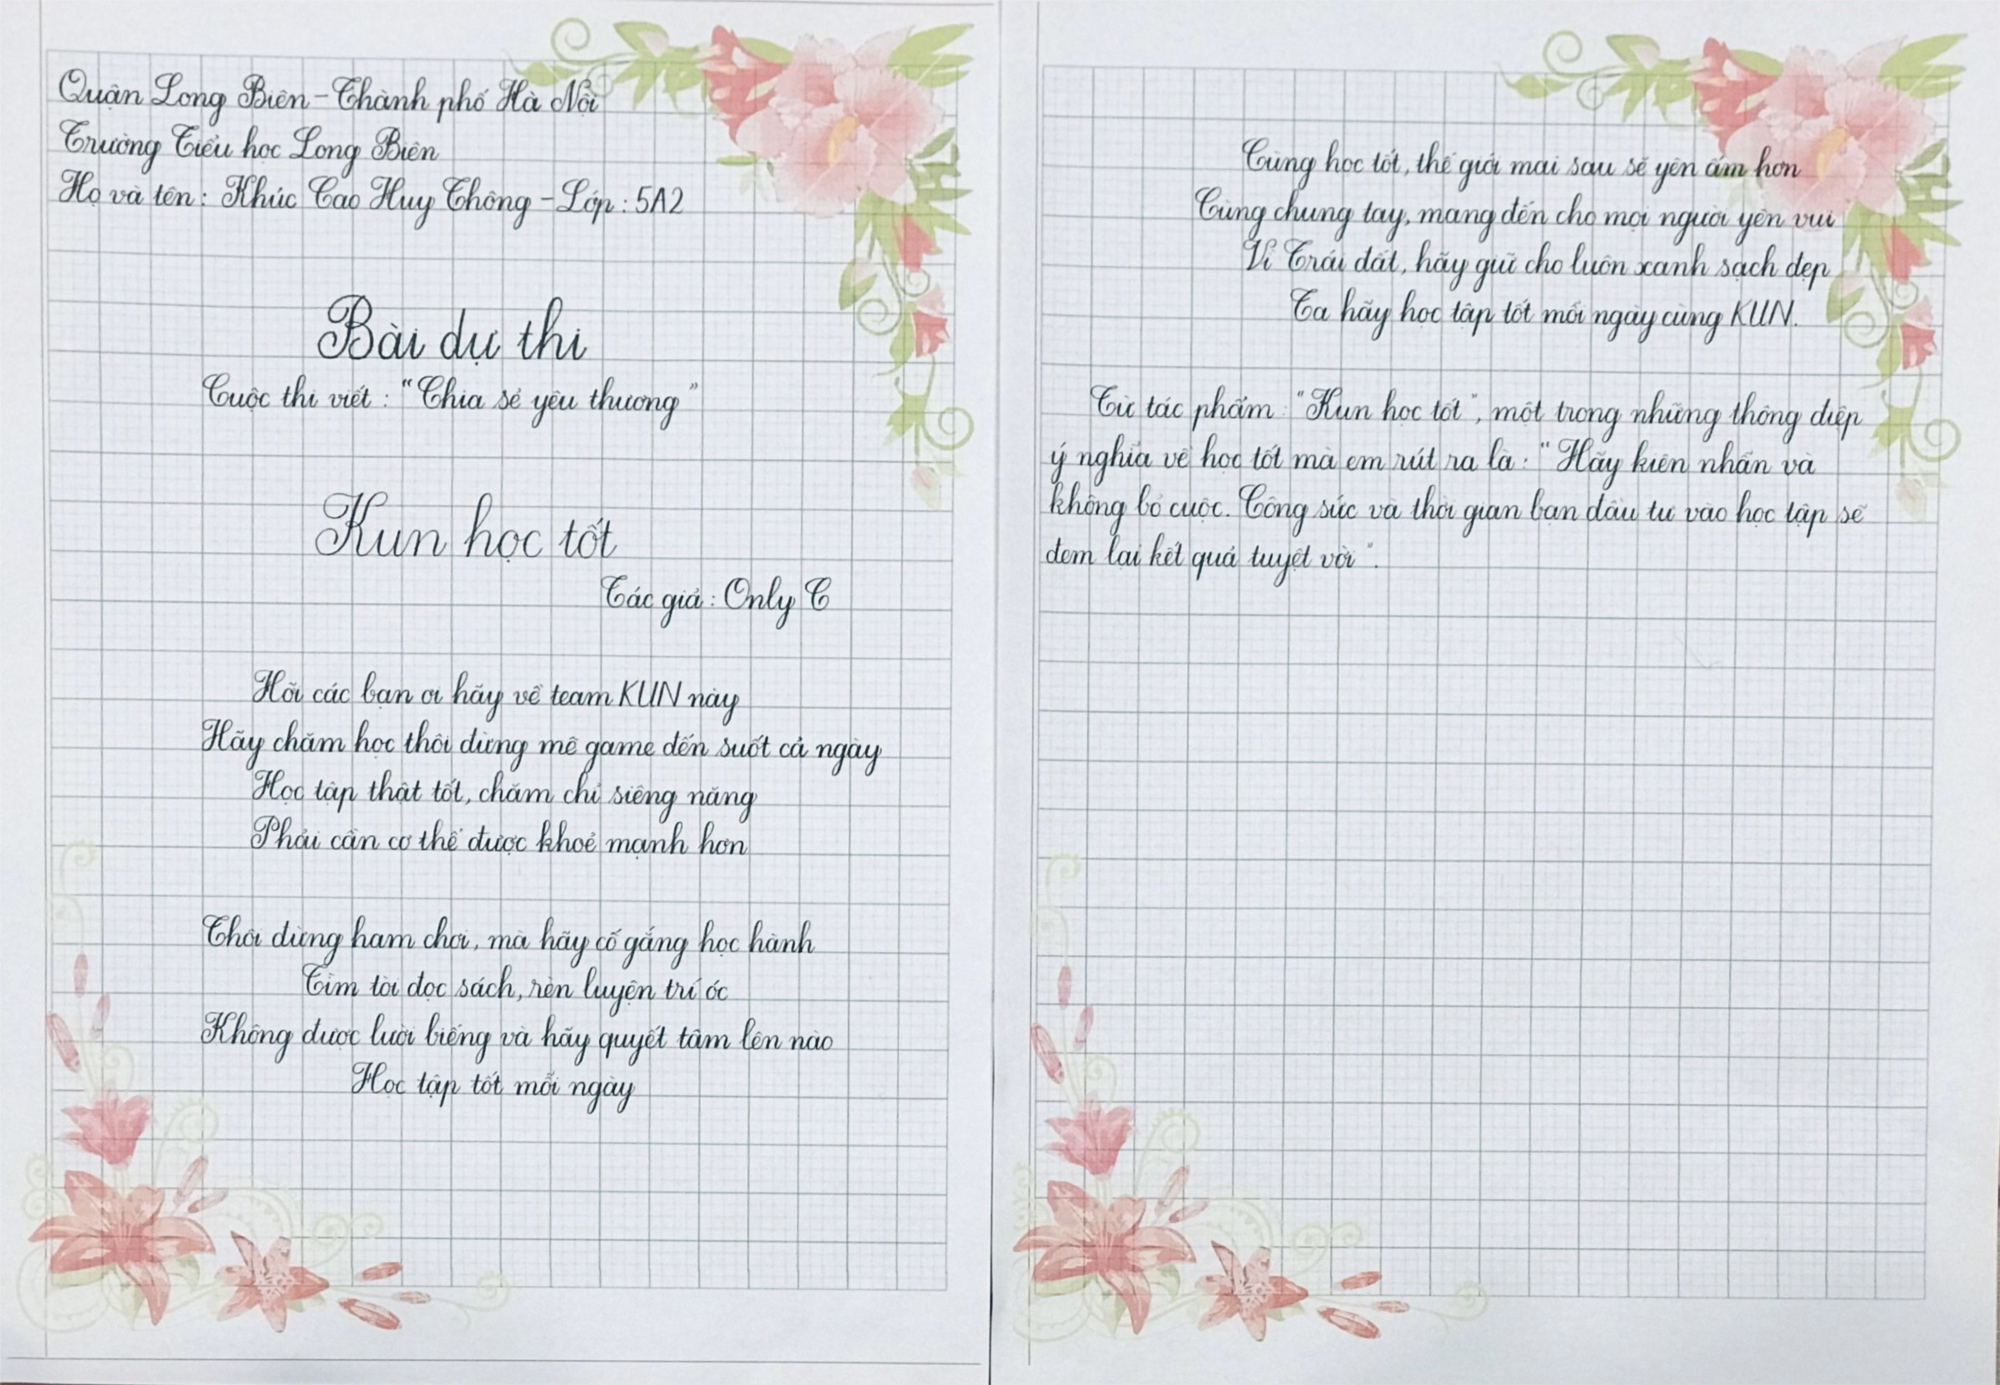 Quận Long Biên - Thành phố Hà Nội
Trường Tiểu học Long Biên
Họ và tên : Khúc Cao Huy Thông - Lớp : 5A2
Bài dự thi
Cuộc thi viết : "Chia sẻ yêu thương"
Kun học tốt
Tác giả : Only C
Hỡi các bạn ơi hãy về team KUN này
Hãy chăm học thôi đừng mê game đến suốt cả ngày
Học tập thật tốt, chăm chỉ siêng năng
Phải cần cơ thể được khoẻ mạnh hơn
Thôi đừng ham chơi, mà hãy cố gắng học hành
Tìm tòi đọc sách, rèn luyện trí óc
Không được lười biếng và hãy quyết tâm lên nào
Học tập tốt mỗi ngày
Cùng học tốt, thế giới mai sau sẽ yên ấm hơn
Cùng chung tay, mang đến cho mọi người yên vui
Vì Trái đất, hãy giữ cho luôn xanh sạch đẹp
Ta hãy học tập tốt mỗi ngày cùng KUN.
Từ tác phẩm "Kun học tốt", một trong những thông điệp
ý nghĩa về học tốt mà em rút ra là : "Hãy kiên nhẫn và
không bỏ cuộc. Công sức và thời gian bạn đầu tư vào học tập sẽ
đem lại kết quả tuyệt vời".